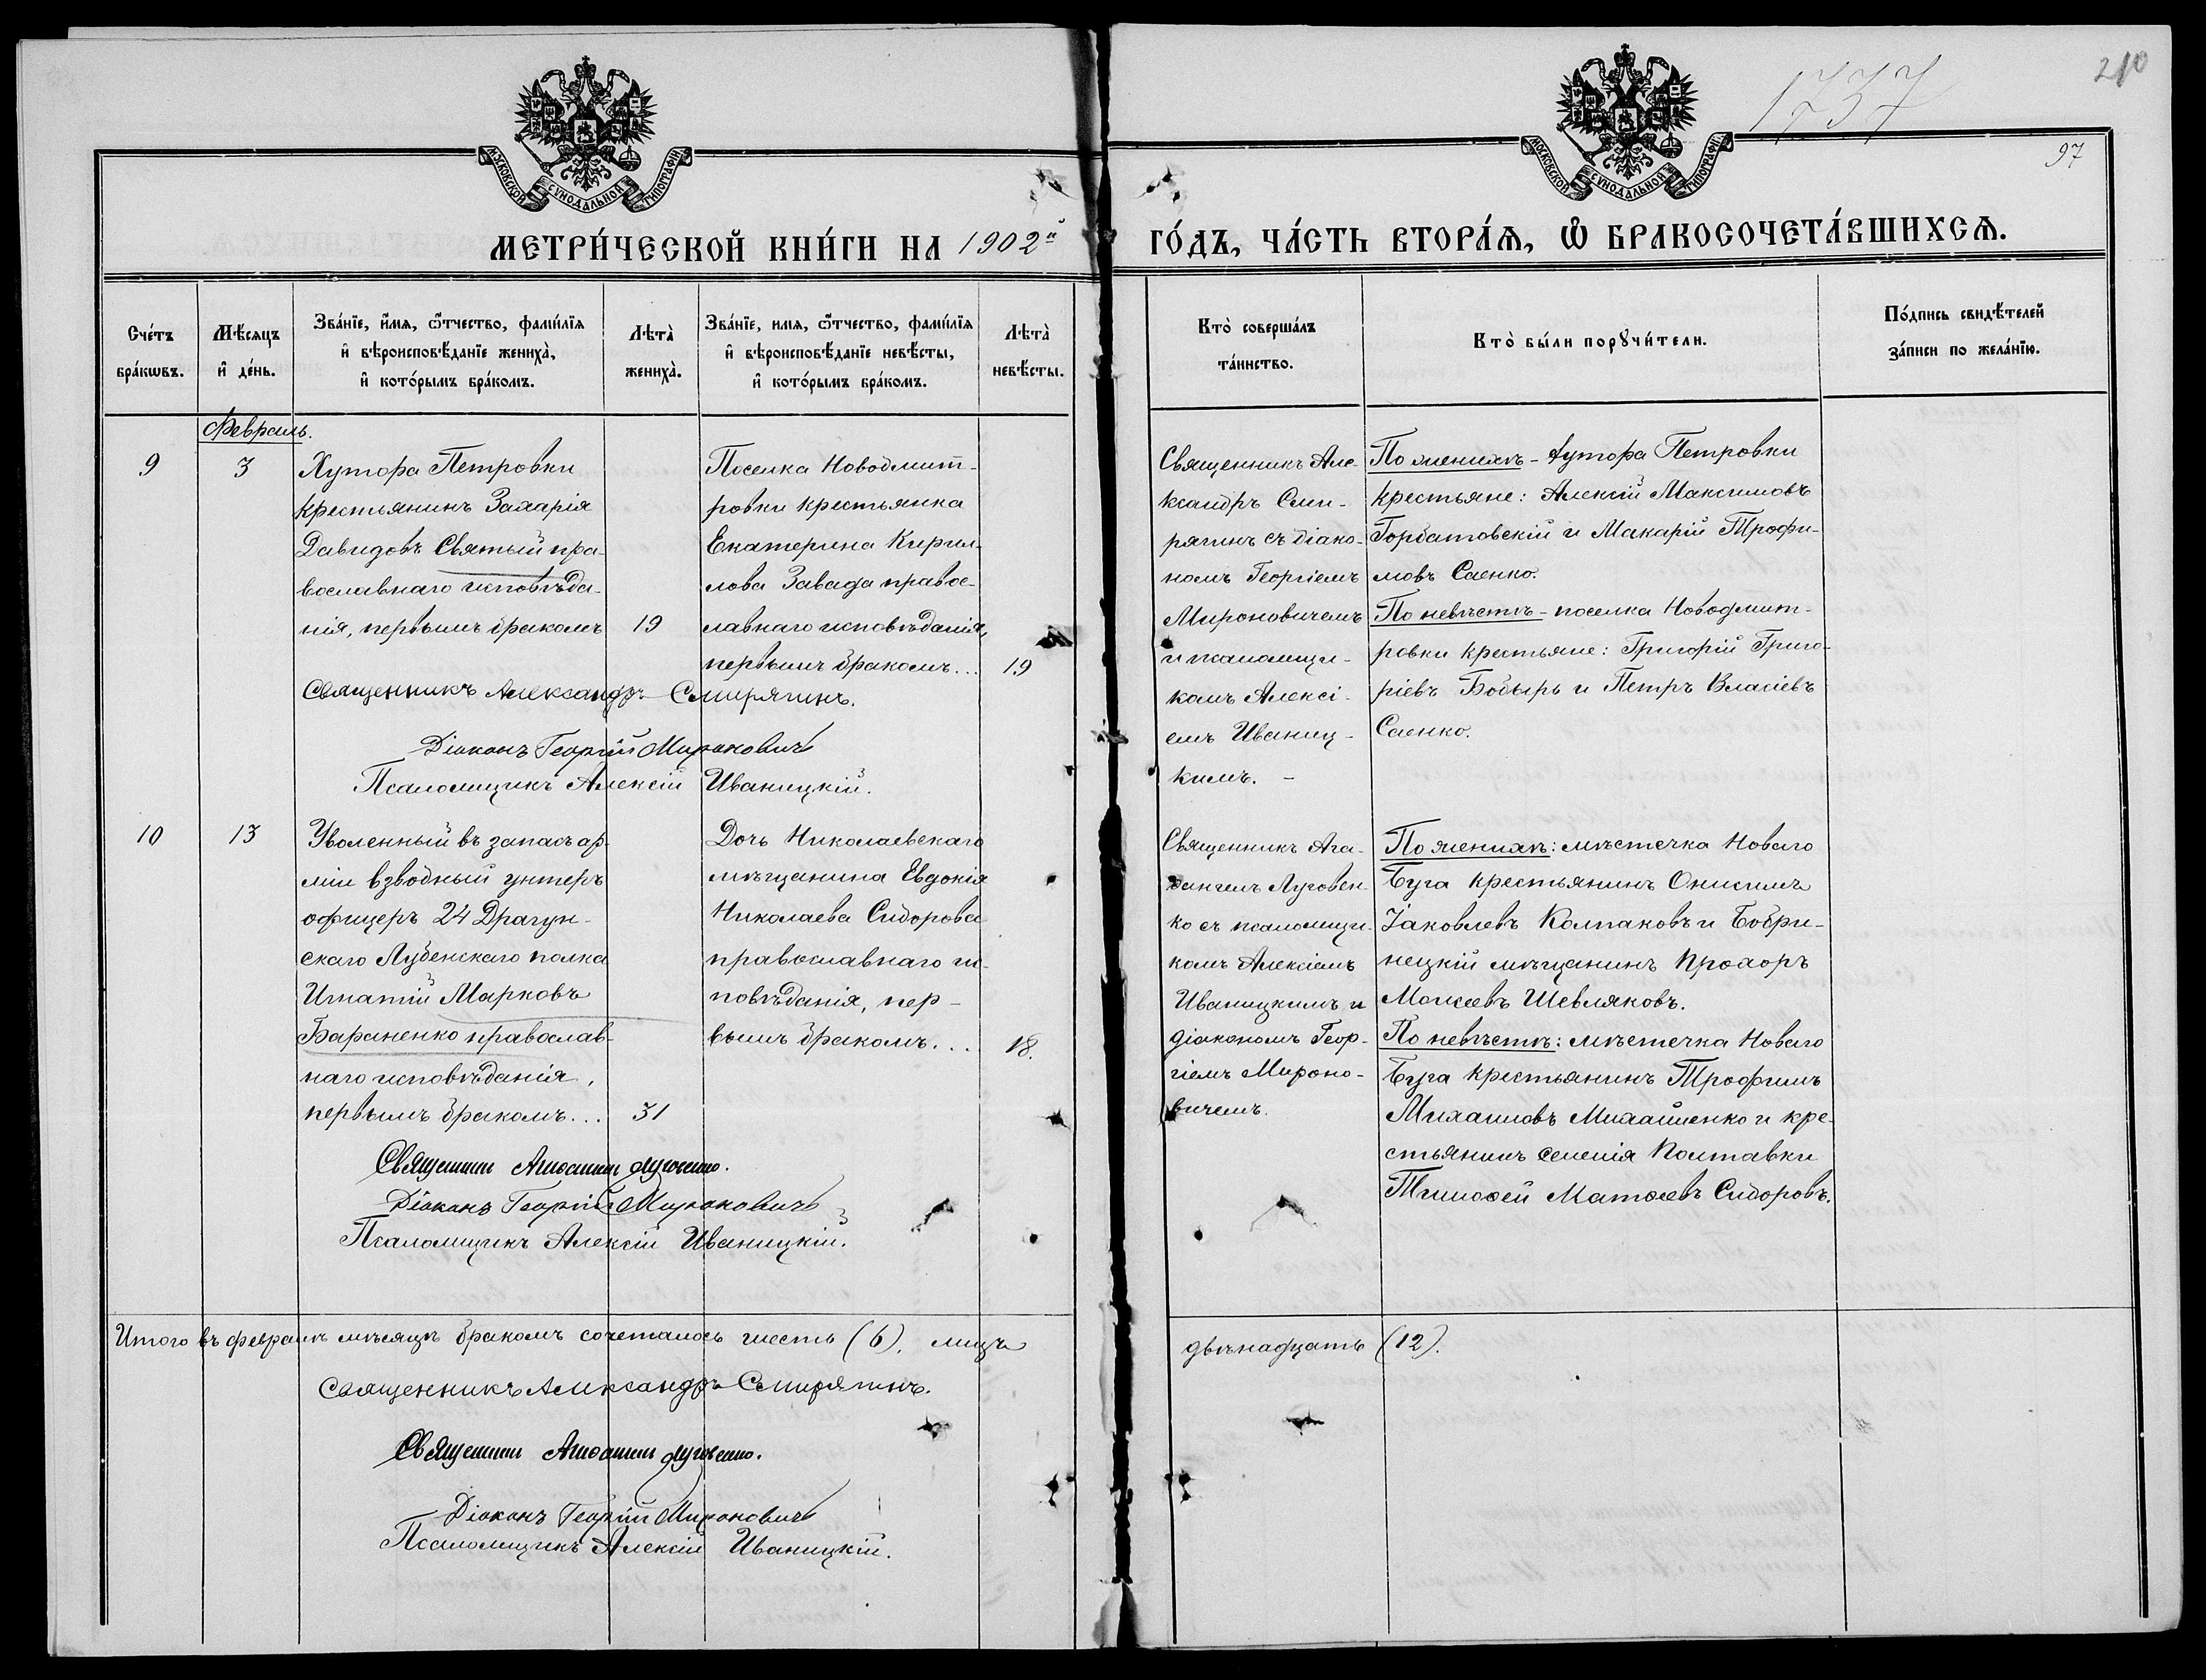 1737
210
97
МОСКОВСКОЙ СУНОДАЛЬНОЙ ТИПОГРАФІИ
МОСКОВСКОЙ СУНОДАЛЬНОЙ ТИПОГРАФІИ
МЕТРИ́ЧЕСКОЙ КНИ́ГИ НА 1902й
ГО́ДЪ, ЧА́СТЬ ВТОРА́Ѧ, Ѽ БРАКОСОЧЕТА́ВШИХСѦ.
Сче́тъ
бра́кѡвъ.
Мѣ́сѧцъ
и҆ де́нь.
Зва́нїе, и҆́мѧ, ѻ҆́тчество, фами́лїѧ
и҆ вѣроисповѣ́данїе жениха̀,
и҆ кото́рымъ бра́комъ.
Лѣта̀
жениха̀.
Зва́нїе, имѧ, ѻ҆́тчество, фами́лїѧ
и҆ вѣроисповѣ́данїе невѣ́сты,
и҆ кото́рымъ бра́комъ.
Лѣта̀
невѣ́сты.
Кто̀ соверша́лъ
та́инство.
Кто̀ бы́ли порꙋчи́тели.
По́дпись свидѣ́телей
за́писи по жела́нїю.
Февраль.
9
3
Хутора Петровки
крестьянинъ Захарія
Давидовъ Святый пра-
вославнаго исповѣда-
нія, первымъ бракомъ
19
Поселка Новодмит-
ровки крестьянка
Екатерина Кирил-
лова Завада правос-
лавнаго исповѣданія,
первымъ бракомъ...
19
Священникъ Але-
ксандръ Сми-
рягинъ съ діако-
номъ Георгіемъ
Мироновичемъ
и псаломщи-
комъ Алексі-
емъ Иваниц-
кимъ. -
По женихѣ - хутора Петровки
крестьяне: Алексій Максимовъ
Горбатовскій и Макарій Трофи-
мовъ Саенко.
По невѣстѣ - поселка Новодмит-
ровки крестьяне: Григорій Григо-
ріевъ Бобырь и Петръ Власіевъ
Саенко.
Священникъ Александръ Смирягинъ.
Діаконъ Георгій Мироновичъ
Псаломщикъ Алексій Иваницкій.
10
13
Уволенный въ запасъ ар-
міи взводный унтеръ
офицеръ 24 Драгун-
скаго Лубенскаго полка
Игнатій Марковъ
Бараненко православ-
наго исповѣданія,
первымъ бракомъ...
31
Дочь Николаевскаго
мѣщанина Евдокія
Николаева Сидорова
православнаго ис-
повѣданія, пер-
вымъ бракомъ...
18.
Священникъ Ага-
ѳангелъ Луговен-
ко съ псаломщи-
комъ Алексіемъ
Иваницкимъ и
діакономъ Геор-
гіемъ Мироно-
вичемъ.
По женихѣ: мѣстечка Новаго
Буга крестьянинъ Онисимъ
Іаковлевъ Колпаковъ и Бобри-
нецкій мѣщанинъ Прохоръ
Моисеевъ Шевляковъ.
По невѣстѣ: мѣстечка Новаго
Буга крестьянинъ Трофимъ
Михаиловъ Михайленко и кре-
стьянинъ селенія Полтавки
Тимоѳей Матѳеевъ Сидоровъ.
Священникъ Агаѳангелъ Луговенко.
Діаконъ Георгій Мироновичъ
Псаломщикъ Алексій Иваницкій.
Итого въ февралѣ мѣсяцѣ бракомъ сочеталось шесть (6). лицъ
двѣнадцать (12).
Священникъ Александръ Смирягинъ.
Священникъ Агаѳангелъ Луговенко.
Діаконъ Георгій Мироновичъ
Псаломщикъ Алексій Иваницкій.